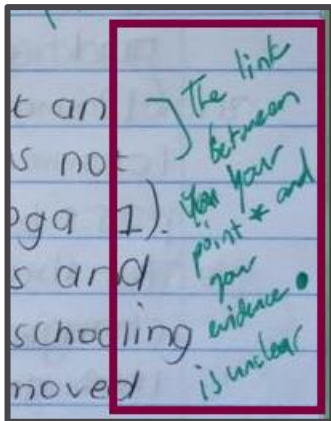 t an
s not
oga 1).
s and
schooling
moved
The link
between
your
point * and
your
evidence.
is unclear